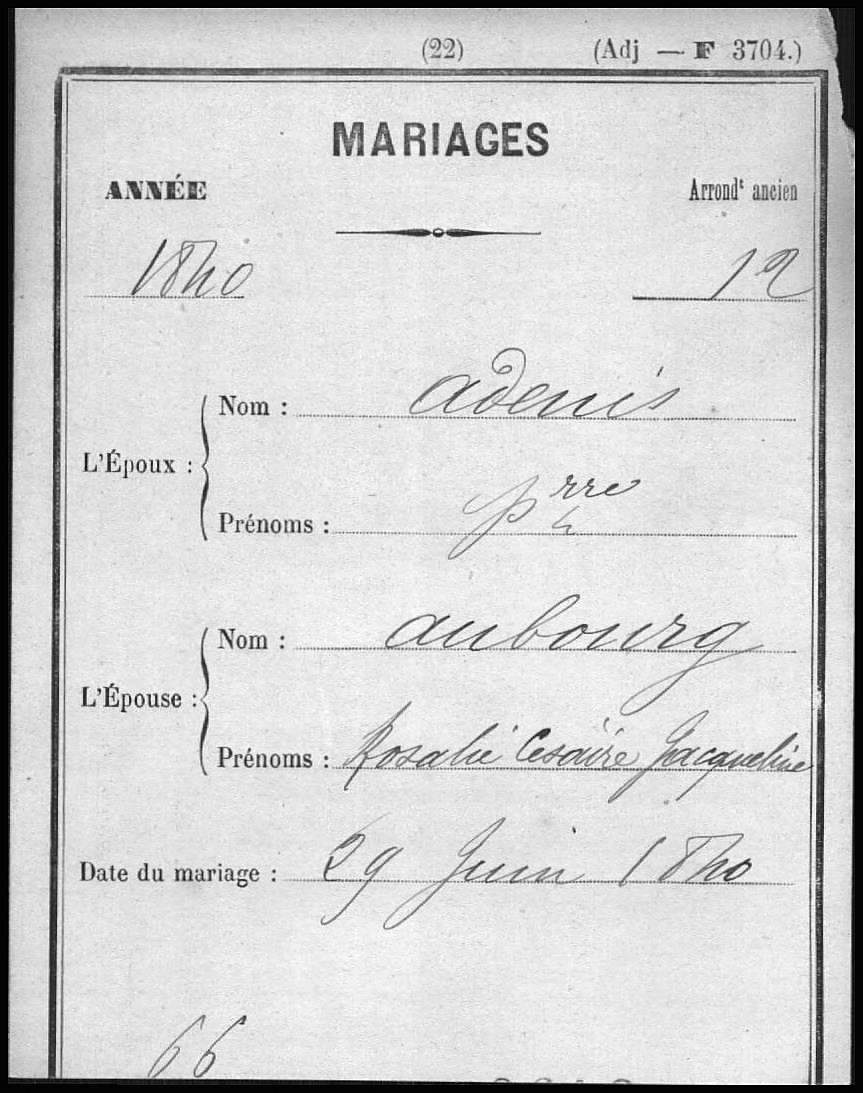 (22) (Adj — F 3704.)
MARIAGES
ANNÉE Arrondt ancien
1840 12
L'Époux :
Nom : adenis
Prénoms : prre
L'Épouse :
Nom : aubourg
Prénoms : Rosalie Cesaïre Jacqueline
Date du mariage : 29 Juin 1840
66